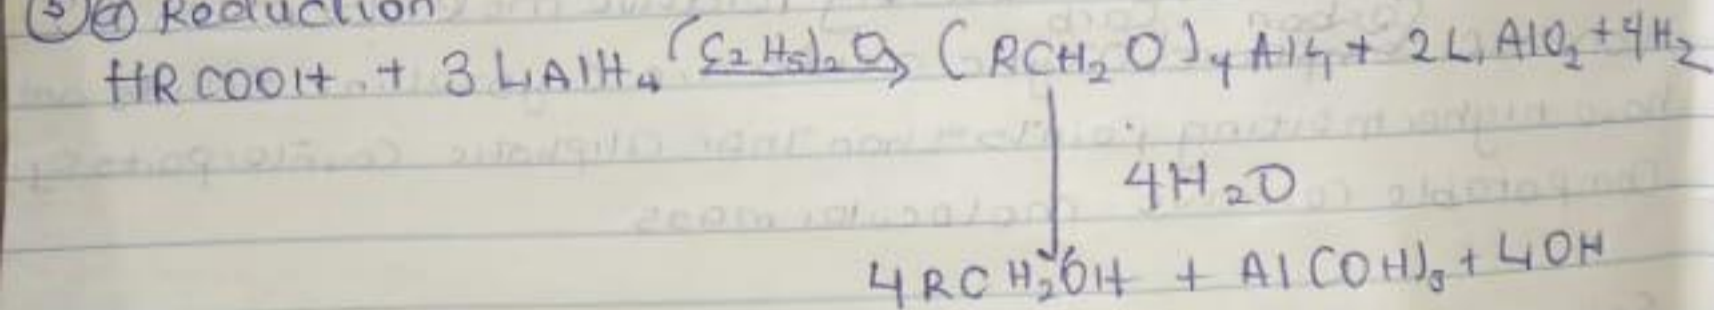 ③ⓐ Reduction
HRCOOH + 3LiAlH₄ (C₂H₅)₂O → (RCH₂O)₄Al4 + 2LiAlO₂ + 4H₂
4H₂O
4RCH₂OH + Al(OH)₃ + 4OH